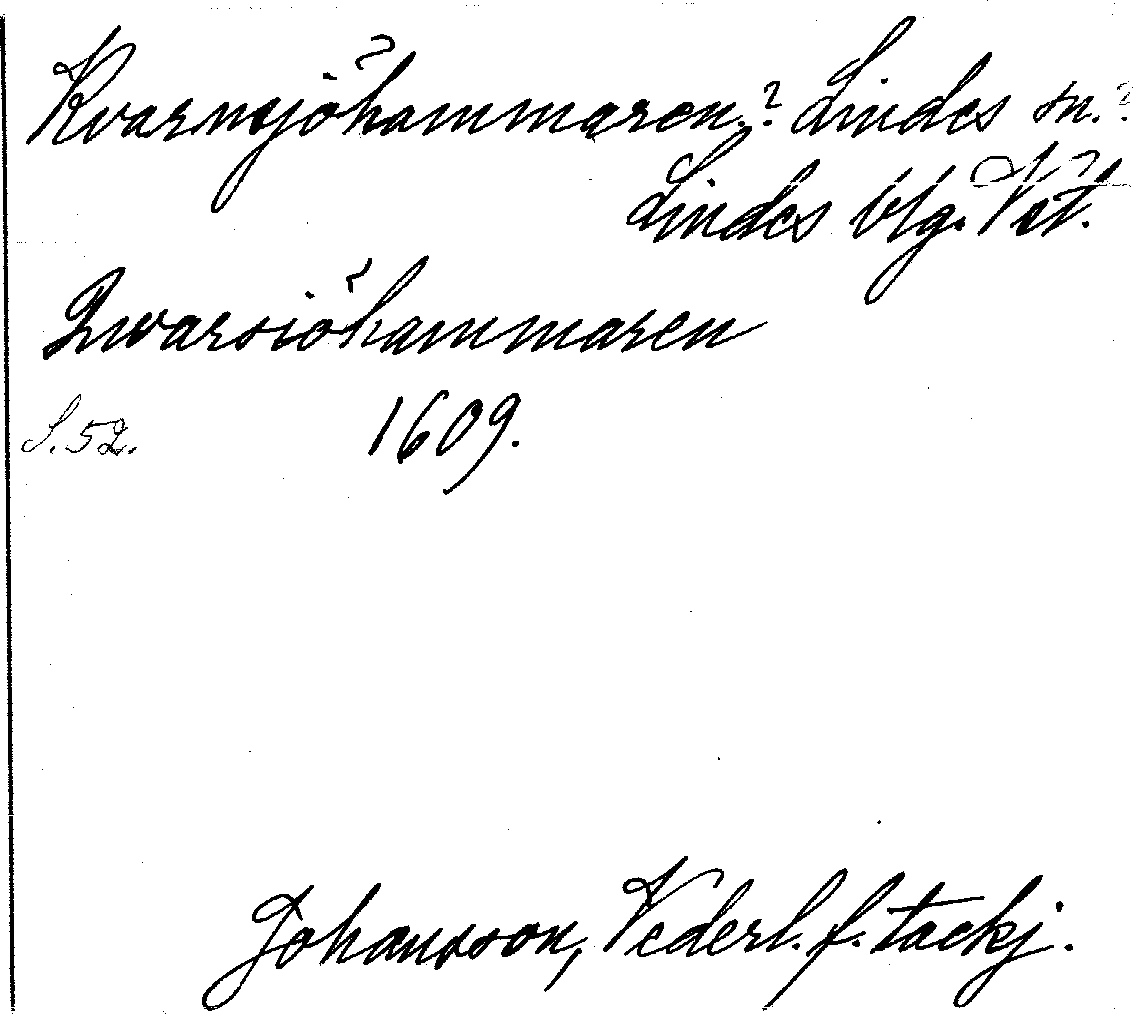 Kvarnsjöhammaren? Lindes sn.?
Lindes blg. Vst.
Qwarsiöhammaren
S. 52. 1609.
Johansson, Vederl. f. tackj.